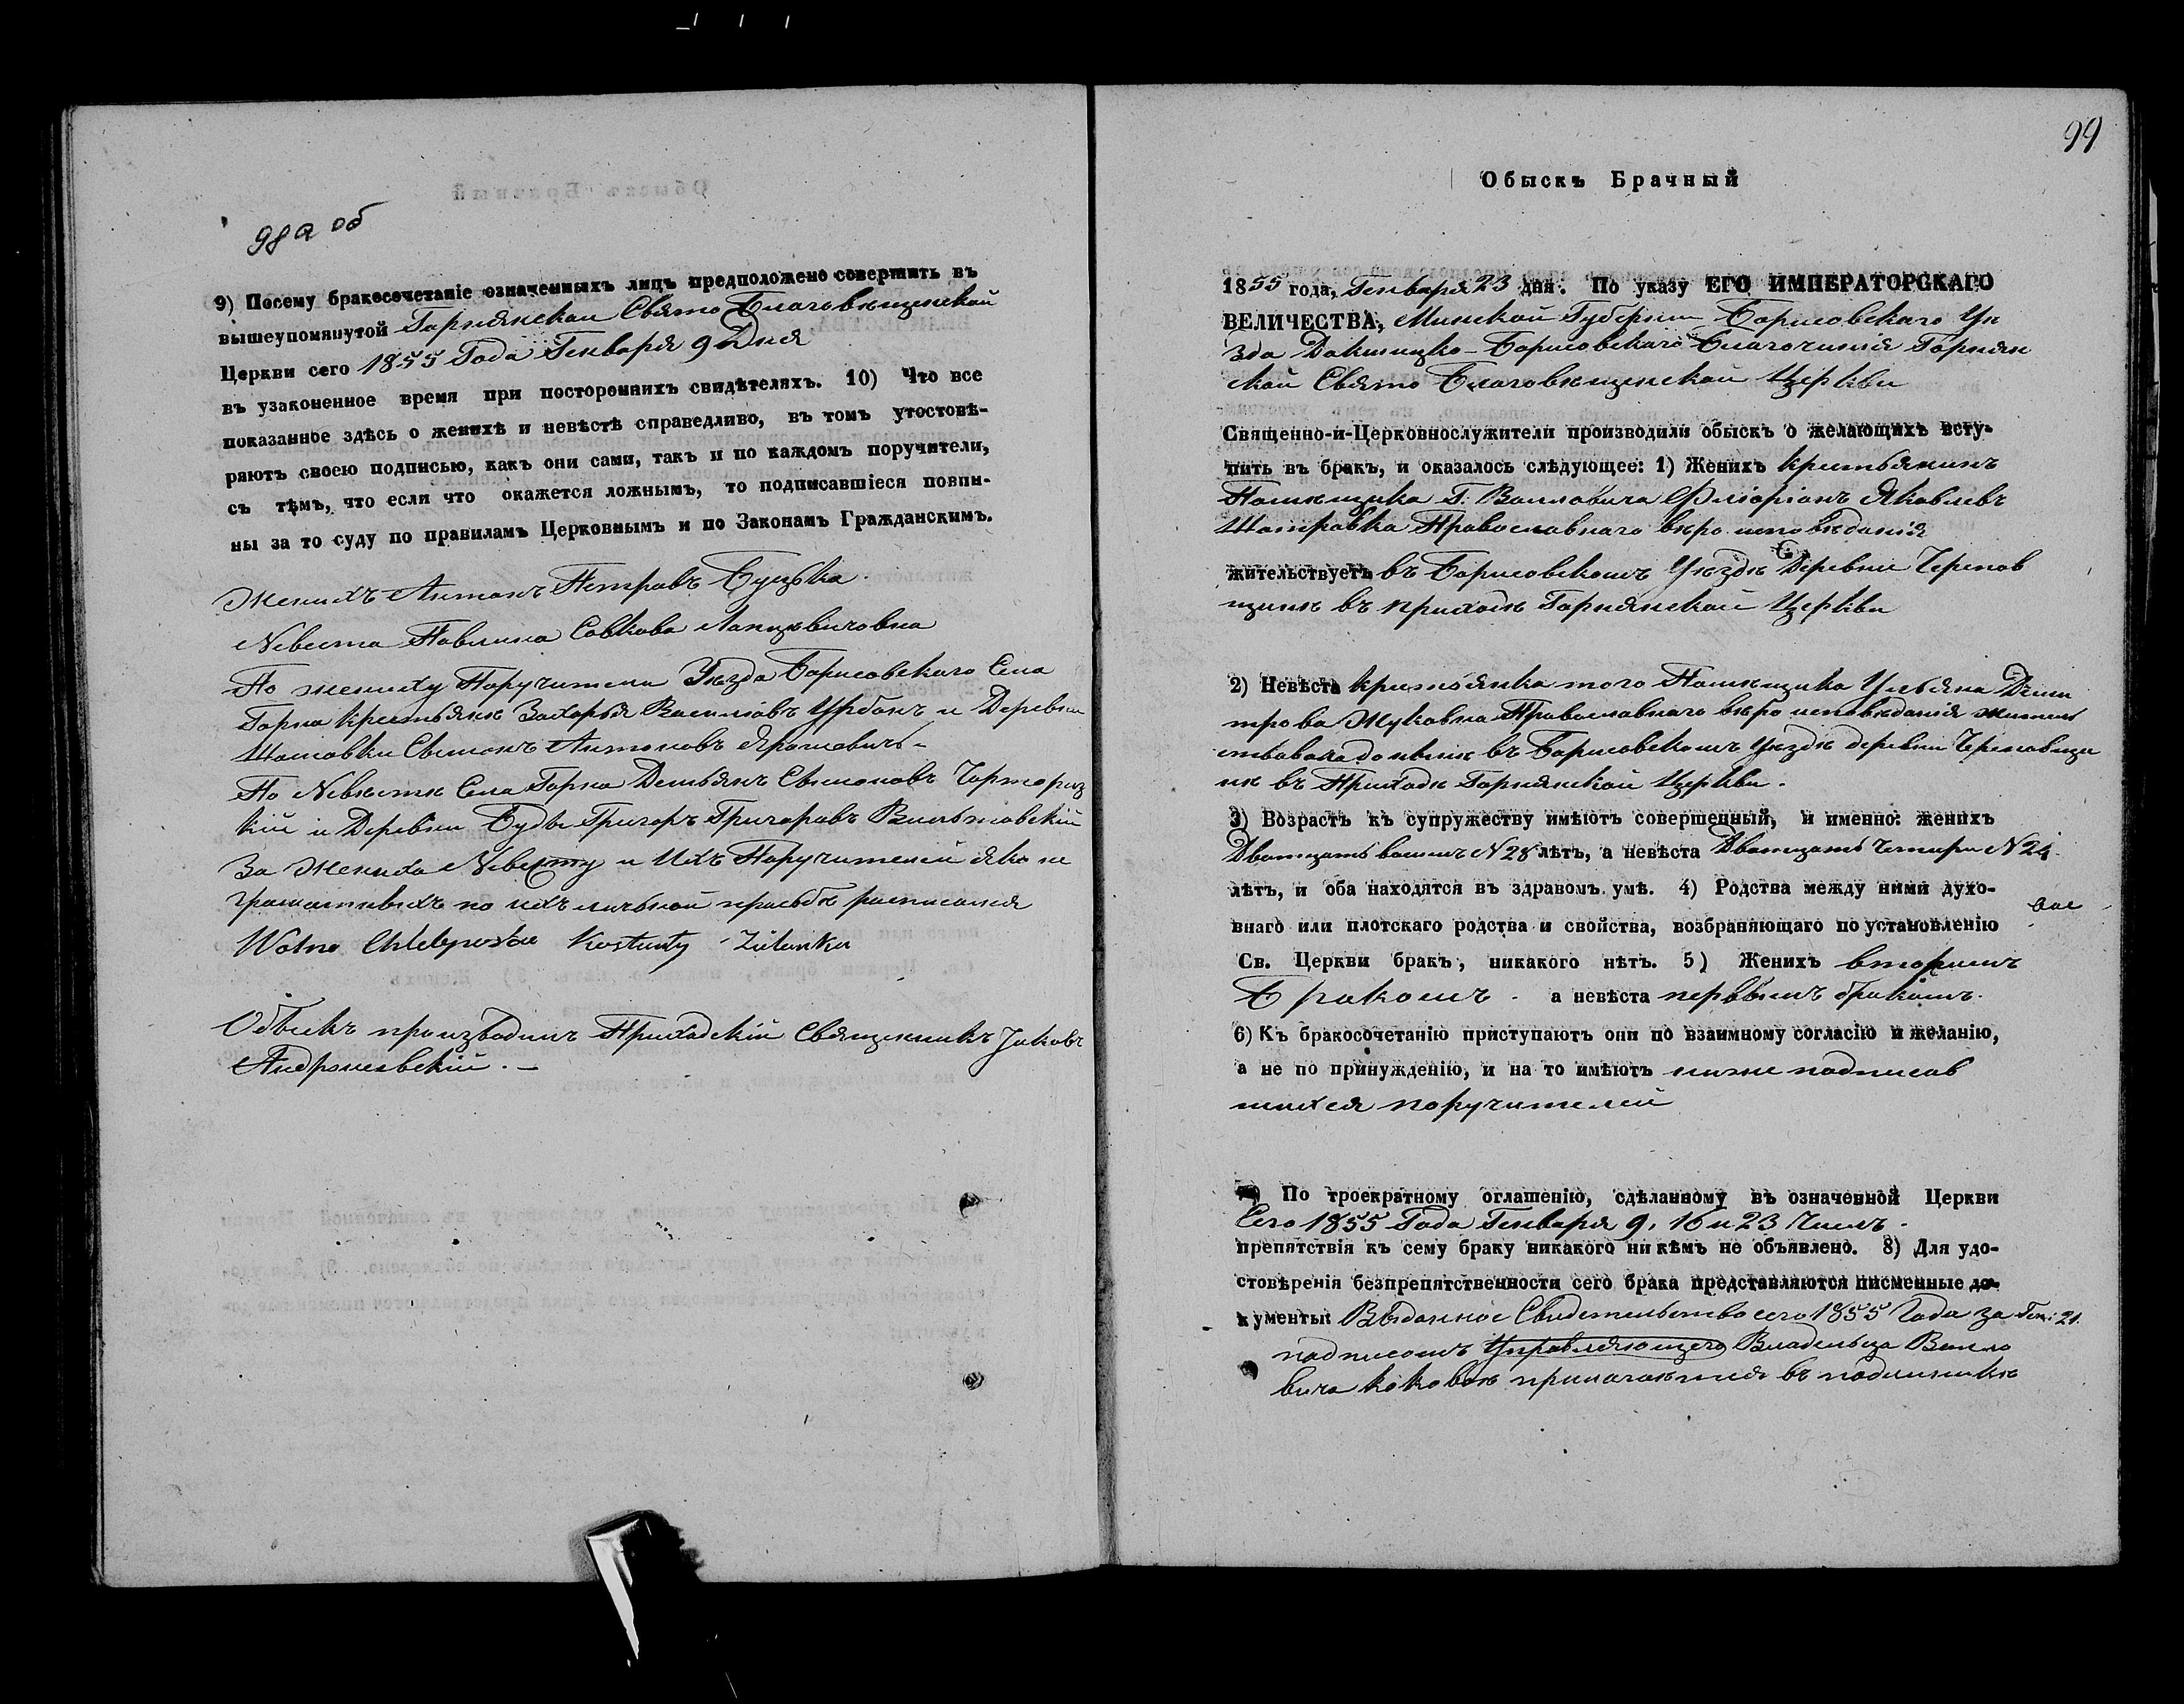 98а об
9) Посему бракосочетаніе означенныхъ лицъ предположено совершить въ
вышеупомянутой Горнянской Свято Благовѣщенской
Церкви сего 1855 Года Генваря 9 Дня
въ узаконенное время при постороннихъ свидѣтеляхъ. 10) Что все
показанное здѣсь о женихѣ и невѣстѣ справедливо, въ томъ утостовѣ-
ряютъ своею подписью, какъ они сами, такъ и по каждомъ поручители,
съ тѣмъ, что если что окажется ложнымъ, то подписавшіеся повин-
ны за то суду по правиламъ Церковнымъ и по Законамъ Гражданскимъ.
Женихъ Антонъ Петровъ Буцька
Невеста Павлина Савкова
По жениху Поручители Уѣзда Борисовскаго Села
Горна крестьяне Захарья Василіовъ Урбанъ и Деревни
Свѣмонъ Антоновъ Ярошевичъ
По Невѣсте Села Горна Демьянъ Свѣмоновъ Чарториз
кій и Деревни Буды Григоръ Григоровъ
За Жениха Невесту и Ихъ Поручителей яко не
грамотныхъ по ихъ личьной прозьбѣ росписался
Wolno Chlebpostw Kostanty Zielonka
Обыскъ производилъ Приходскій Священникъ Јаковъ
.—
99
Обыскъ Брачный
1855 года, Генваря 23 дня. По указу ЕГО ИМПЕРАТОРСКАГО
ВЕЛИЧЕСТВА, Минской Губерніи Борисовскаго Уѣ
зда Докшицко-Борисовскаго Благочинія Горнян
ской Свято Благовѣщенской Церкви
Священно-и-Церковнослужители производили обыскъ о желающихъ всту-
пить въ бракъ, и оказалось слѣдующее: 1) Женихъ крестьянинъ
Помѣщика Г. Воиловича Фліоріанъ Яковлевъ
Шатравка Православнаго вѣро исповѣданія
жительствуетъ въ Борисовскомъ Уѣздѣ Деревни Черепов
щинѣ въ приходѣ Горнянской Церкви
2) Невѣста крестьянка того Помѣщика Ульяна Дми
трова Жуковна Православнаго вѣро исповѣданія жител
ствовала донынѣ въ Борисовскомъ Уѣздѣ деревни Череповщи
нѣ въ Приходѣ Горнянской Церкви.
3) Возрастъ къ супружеству имѣютъ совершенный, и именно: женихъ
Дватцать восимъ N 28 лѣтъ, а невѣста Дватцать Четыри N 24
лѣтъ, и оба находятся въ здравомъ умѣ. 4) Родства между ними духо-
внаго или плотскаго родства и свойства, возбраняющаго по установленію
Св. Церкви бракъ, никакого нѣтъ. 5) Женихъ вторымъ
Бракомъ. а невѣста первымъ бракомъ.
6) Къ бракосочетанію приступаютъ они по взаимному согласію и желанію,
а не по принужденію, и на то имѣютъ ниже подписав
шихся поручителей
7) По троекратному оглашенію, сдѣланному въ означенной Церкви
Сего 1855 Года Генваря 9, 16 и 23 Числъ.
препятствія къ сему браку никакого никѣмъ не объявлено. 8) Для удо-
стовѣренія безпрепятственности сего брака представляются писменные до-
кументы: Выданное Свидетельство сего 1855 Года за Ген: 21.
подписомъ Управляющего Владельца Воило
вича каковое прилагается въ подлиникѣ